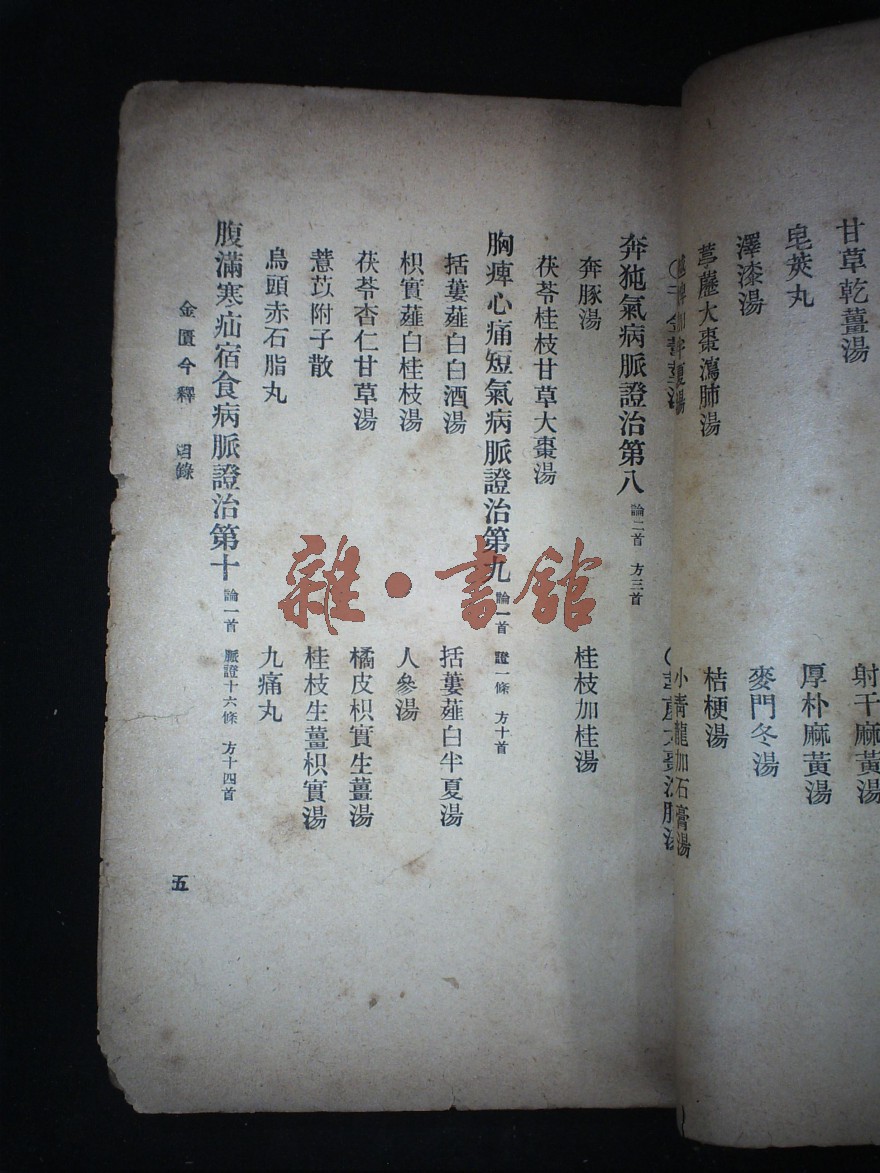 甘草乾薑湯
射干麻黃湯
皂莢丸
厚朴麻黃湯
澤漆湯
麥門冬湯
葶藶大棗瀉肺湯
桔梗湯
小青龍加石膏湯
奔㹠氣病脈證治第八 論二首 方三首
奔豚湯
桂枝加桂湯
茯苓桂枝甘草大棗湯
胸痺心痛短氣病脈證治第九 論一首 證一條 方十首
括蔞薤白白酒湯
括蔞薤白半夏湯
枳實薤白桂枝湯
人參湯
茯苓杏仁甘草湯
橘皮枳實生薑湯
薏苡附子散
桂枝生薑枳實湯
烏頭赤石脂丸
九痛丸
腹滿寒疝宿食病脈證治第十 論一首 脈證十六條 方十四首
金匱今釋 目錄
五
雜·書館